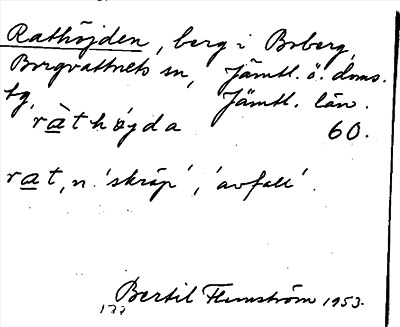 Rathöjden, berg i Boberg,
Borgvattnets sn, Jämtl. ö. doms.
tg, Jämtl. län.
ràthøyda 60.
rat, n. 'skräp', 'avfall'.
Bertil Flemström 1953.